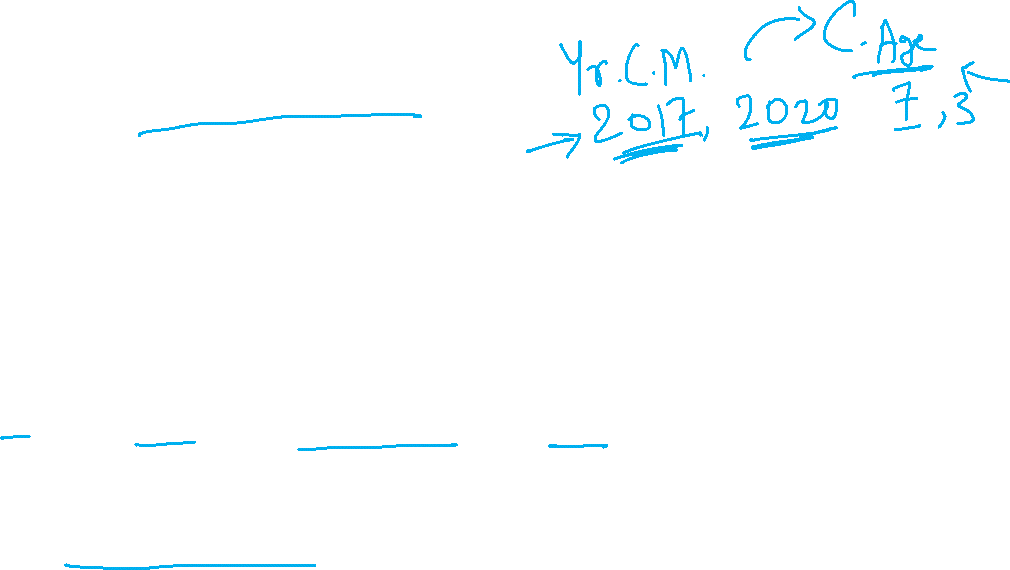 Yr.C.M. C.Age
2017, 2020 7,3